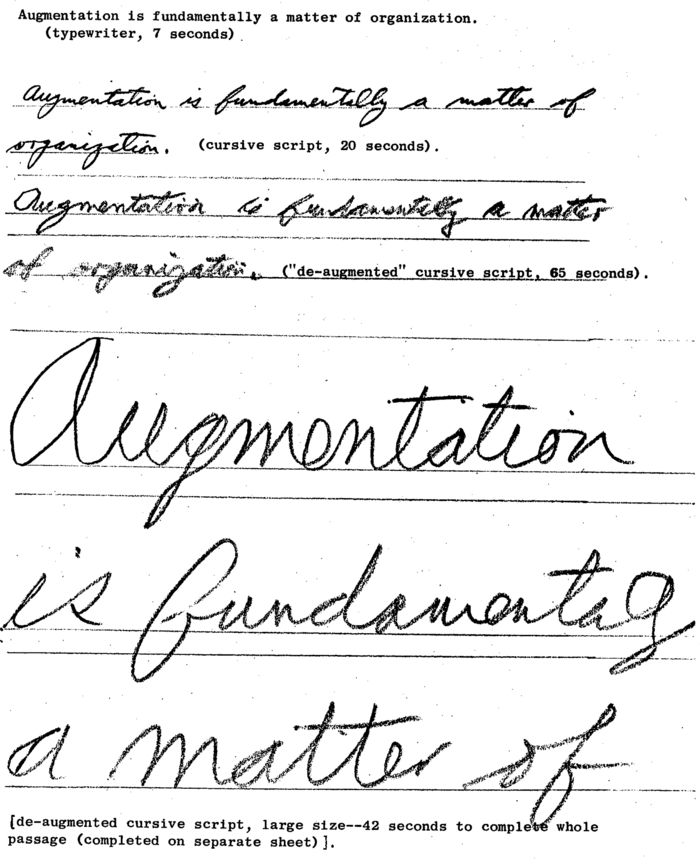 Augmentation is fundamentally a matter of organization.
(typewriter, 7 seconds)
Augmentation is fundamentally a matter of
organization. (cursive script, 20 seconds).
Augmentation is fundamentally a matter
of organization. ("de-augmented" cursive script, 65 seconds).
Augmentation
is fundamentally
a matter of
[de-augmented cursive script, large size--42 seconds to complete whole
passage (completed on separate sheet)].